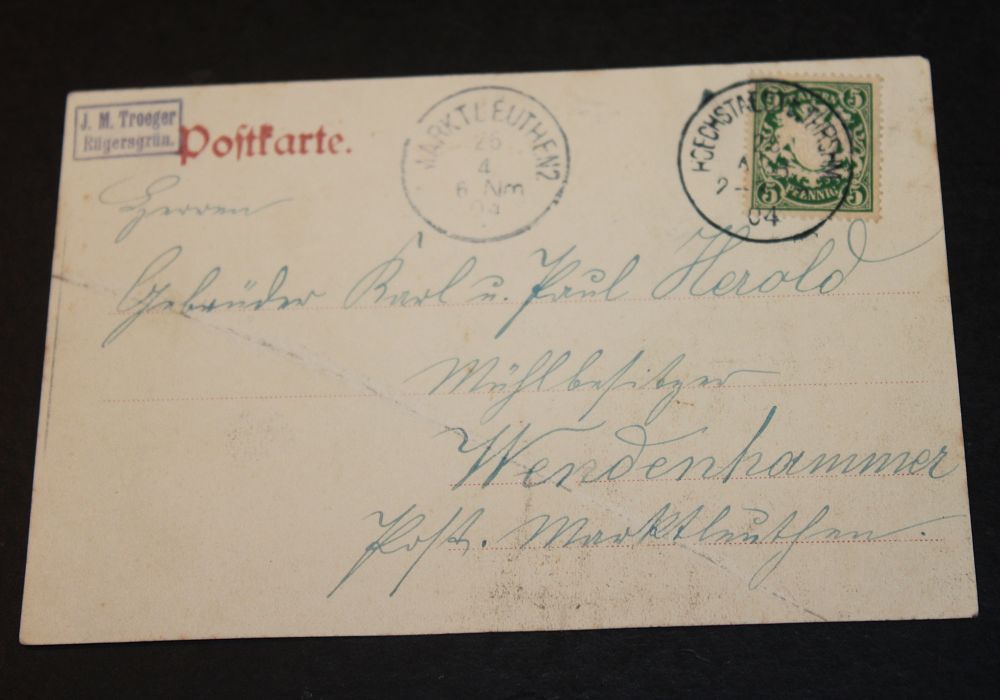 J. M. Troeger
Rügersgrün.
Postkarte.
MARKTLEUTHEN 2
26
4
6 Nm
04
04
BAYERN
5 5
PFENNIG
5 5
Herren
Gebrüder Karl u. Paul Herold
Mühlbesitzer
Wendenhammer
Post. Marktleuthen.